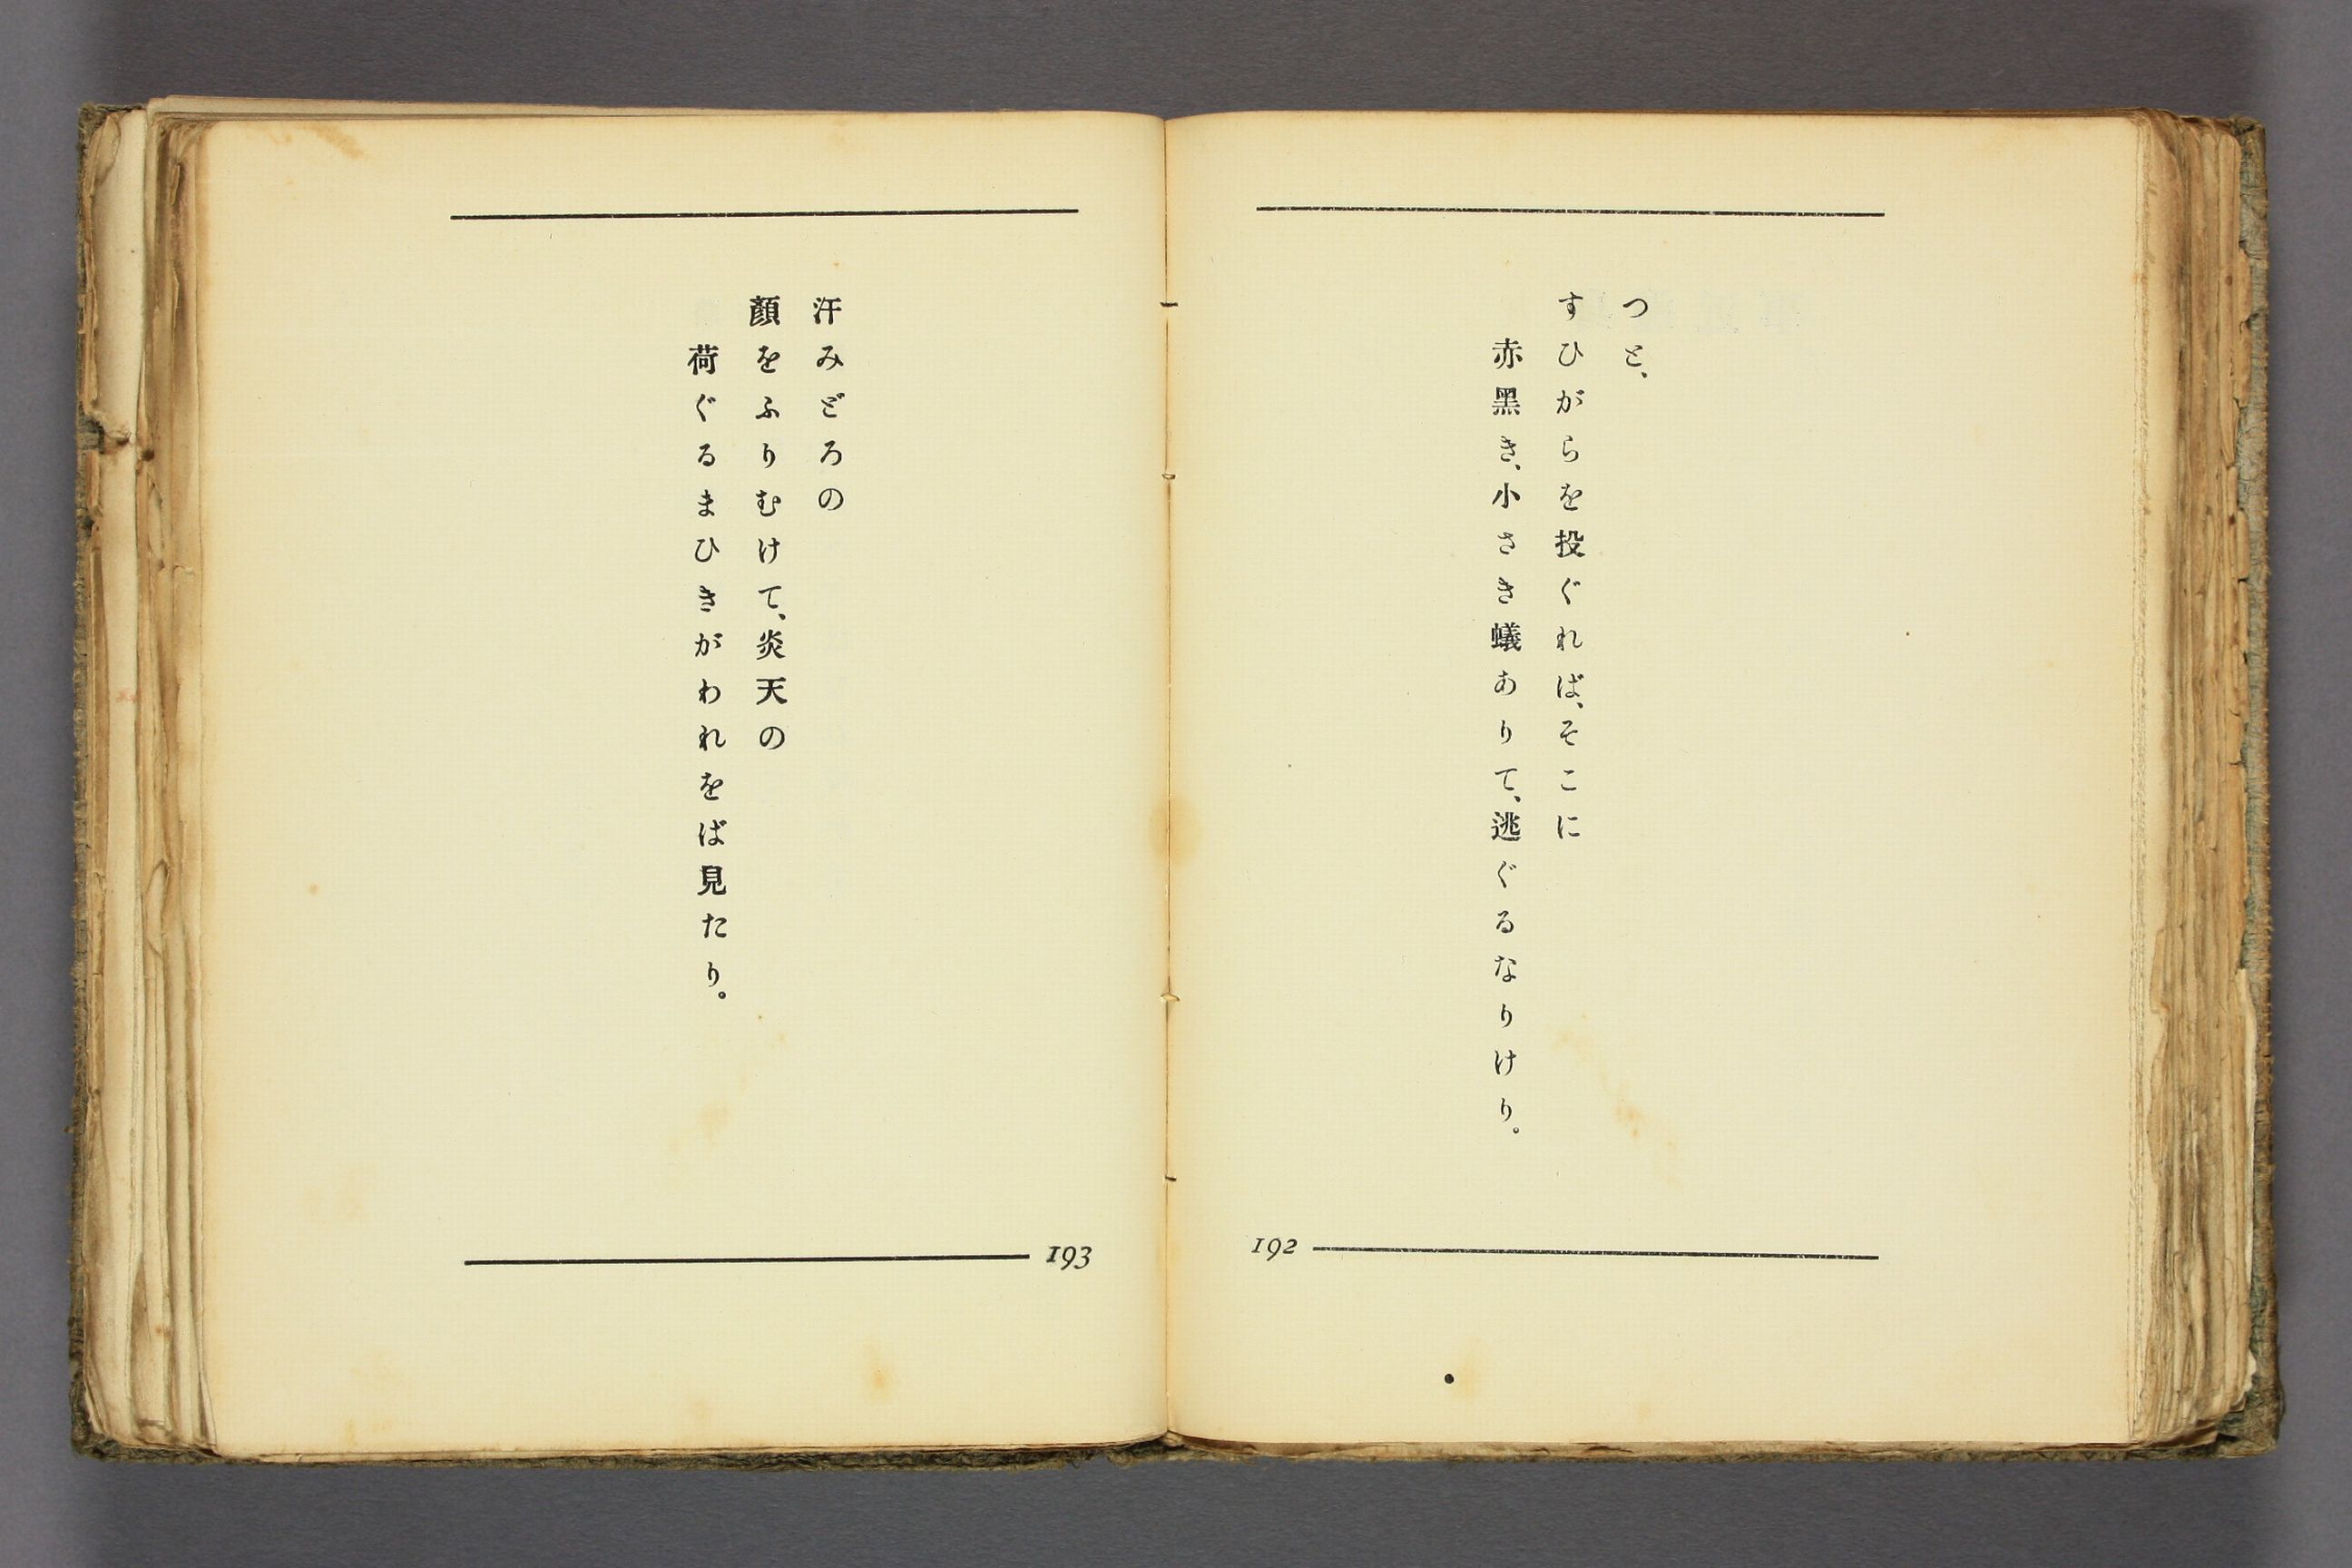 つと、
すひがらを投ぐれば、そこに
赤黑き、小さき蟻ありて、逃ぐるなりけり。
192
汗みどろの
顏をふりむけて、炎天の
荷ぐるまひきがわれをば見たり。
193